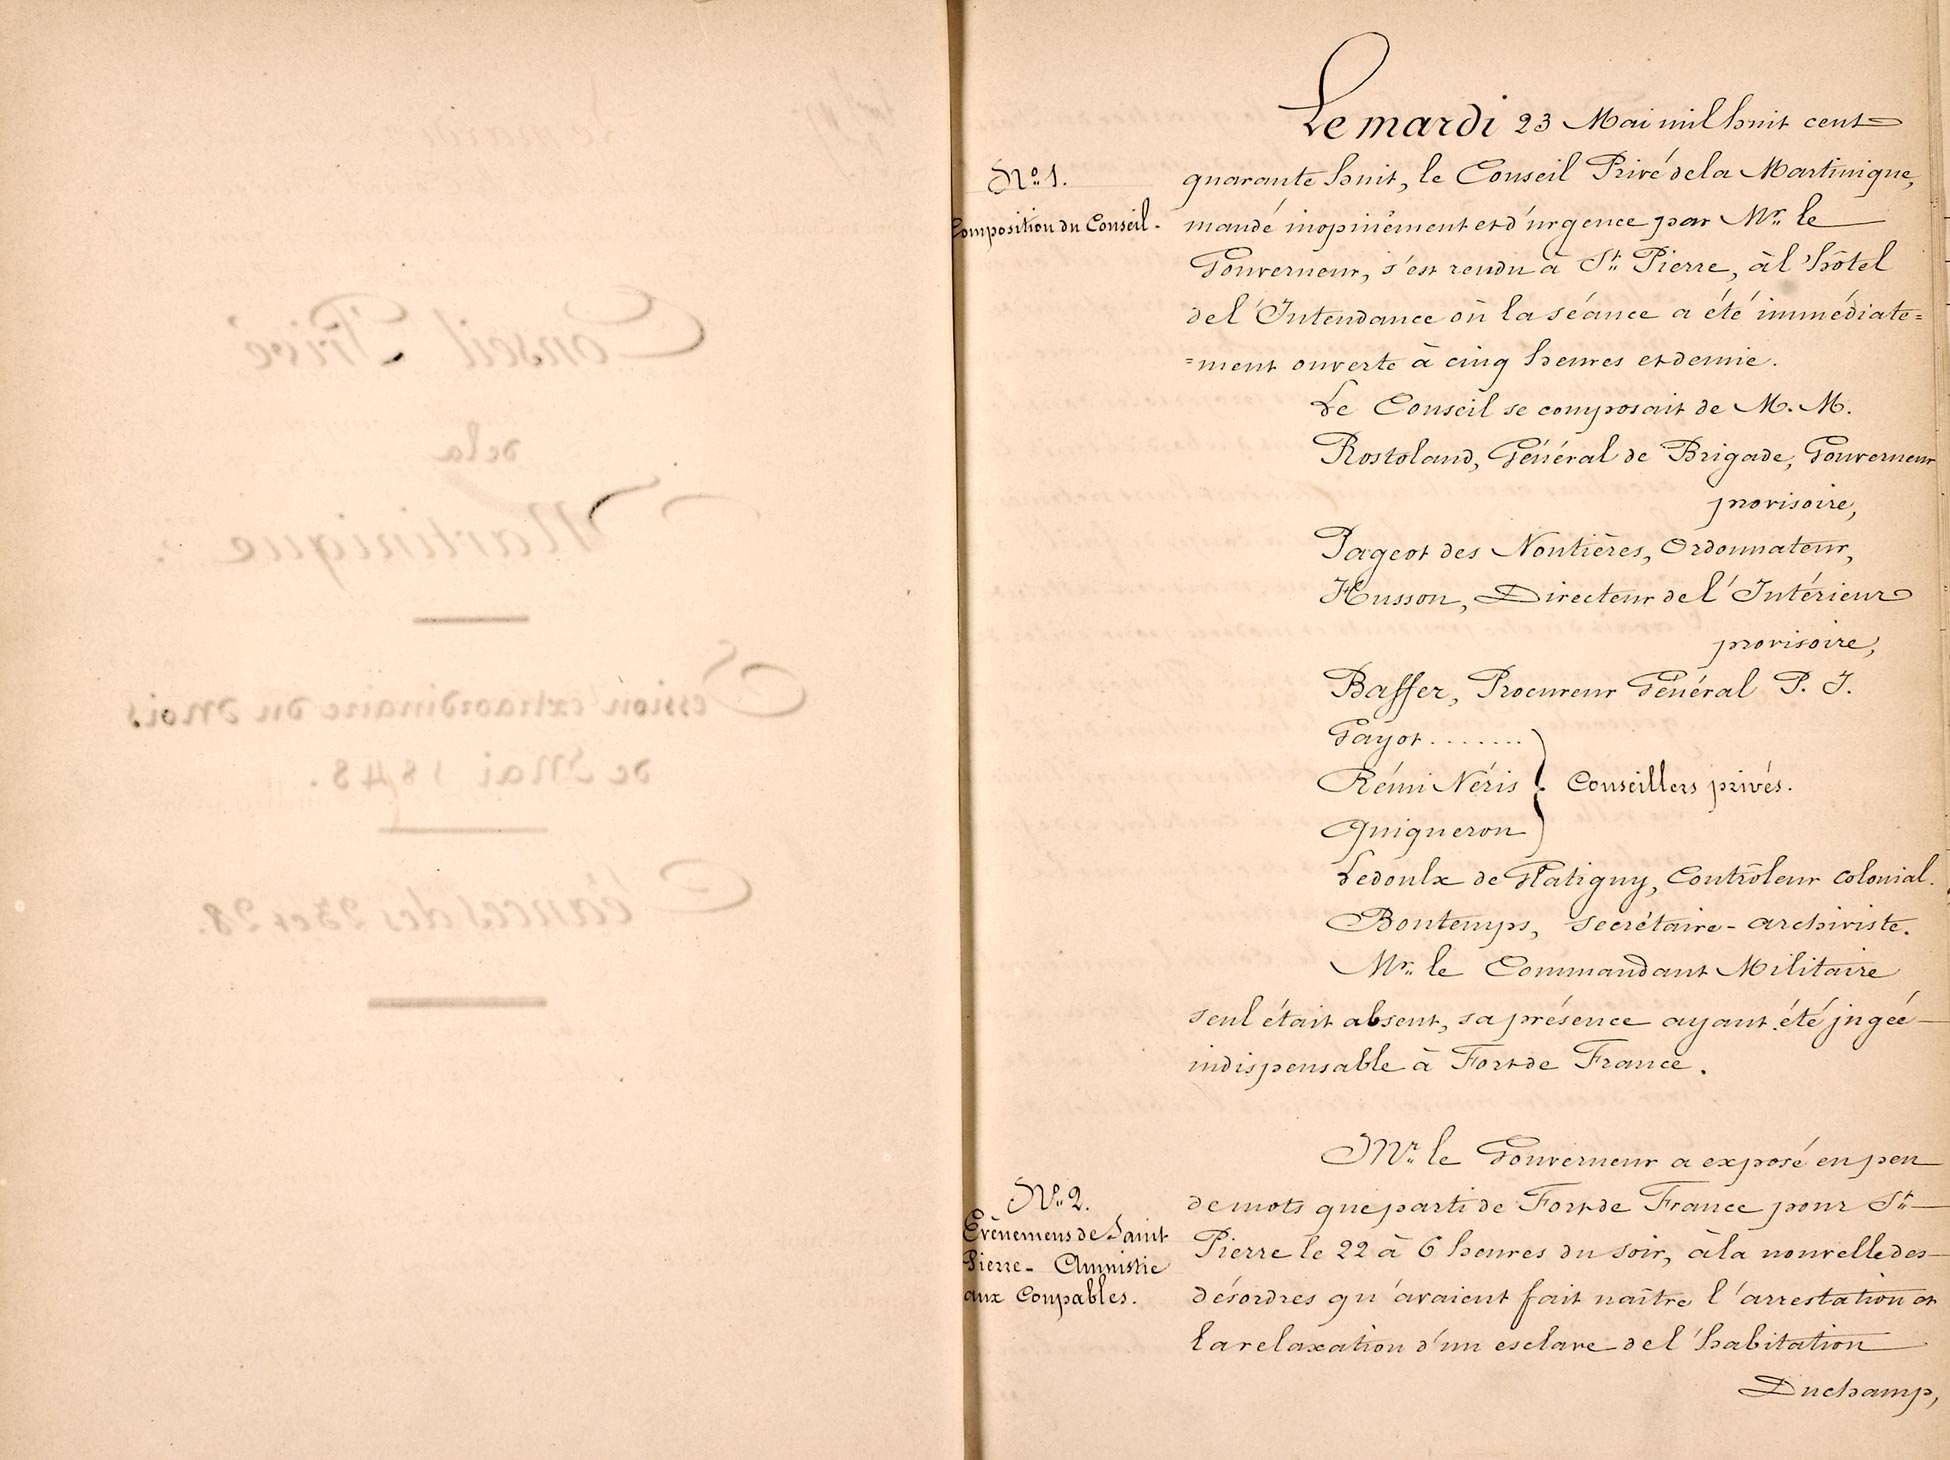 Conseil Privé
de la
Martinique.
Session extraordinaire du mois
de Mai 1848.
Séances des 23 et 28.
Le mardi 23 Mai mil huit cent
quarante huit, le Conseil Privé de la Martinique,
mandé inopinément et d'urgence par Mr. le
Gouverneur, s'est rendu à St. Pierre, à l'hôtel
de l'Intendance où la séance a été immédiate=
=ment ouverte à cinq heures et demie.
Le Conseil se composait de M. M.
Rostoland, Général de Brigade, Gouverneur
provisoire,
Pageot des Noutières, Ordonnateur,
Husson, Directeur de l'Intérieur
provisoire,
Baffer, Procureur Général P. I.
Gayot........
Rémi Néris } Conseillers privés.
Guigneron
Ledoulx de Glatigny, Contrôleur colonial.
Bontemps, secrétaire-archiviste.
Mr. le Commandant Militaire
seul était absent, sa présence ayant été jugée
indispensable à Fort de France.
Mr. le Gouverneur a exposé en peu
de mots que parti de Fort de France pour St.
Pierre le 22 à 6 heures du soir, à la nouvelle des
désordres qu'avaient fait naître l'arrestation et
la relaxation d'un esclave de l'habitation
Duchamp,
No. 1.
Composition du Conseil.
No. 2.
Evènemens de Saint
Pierre - Amnistie
aux Coupables.